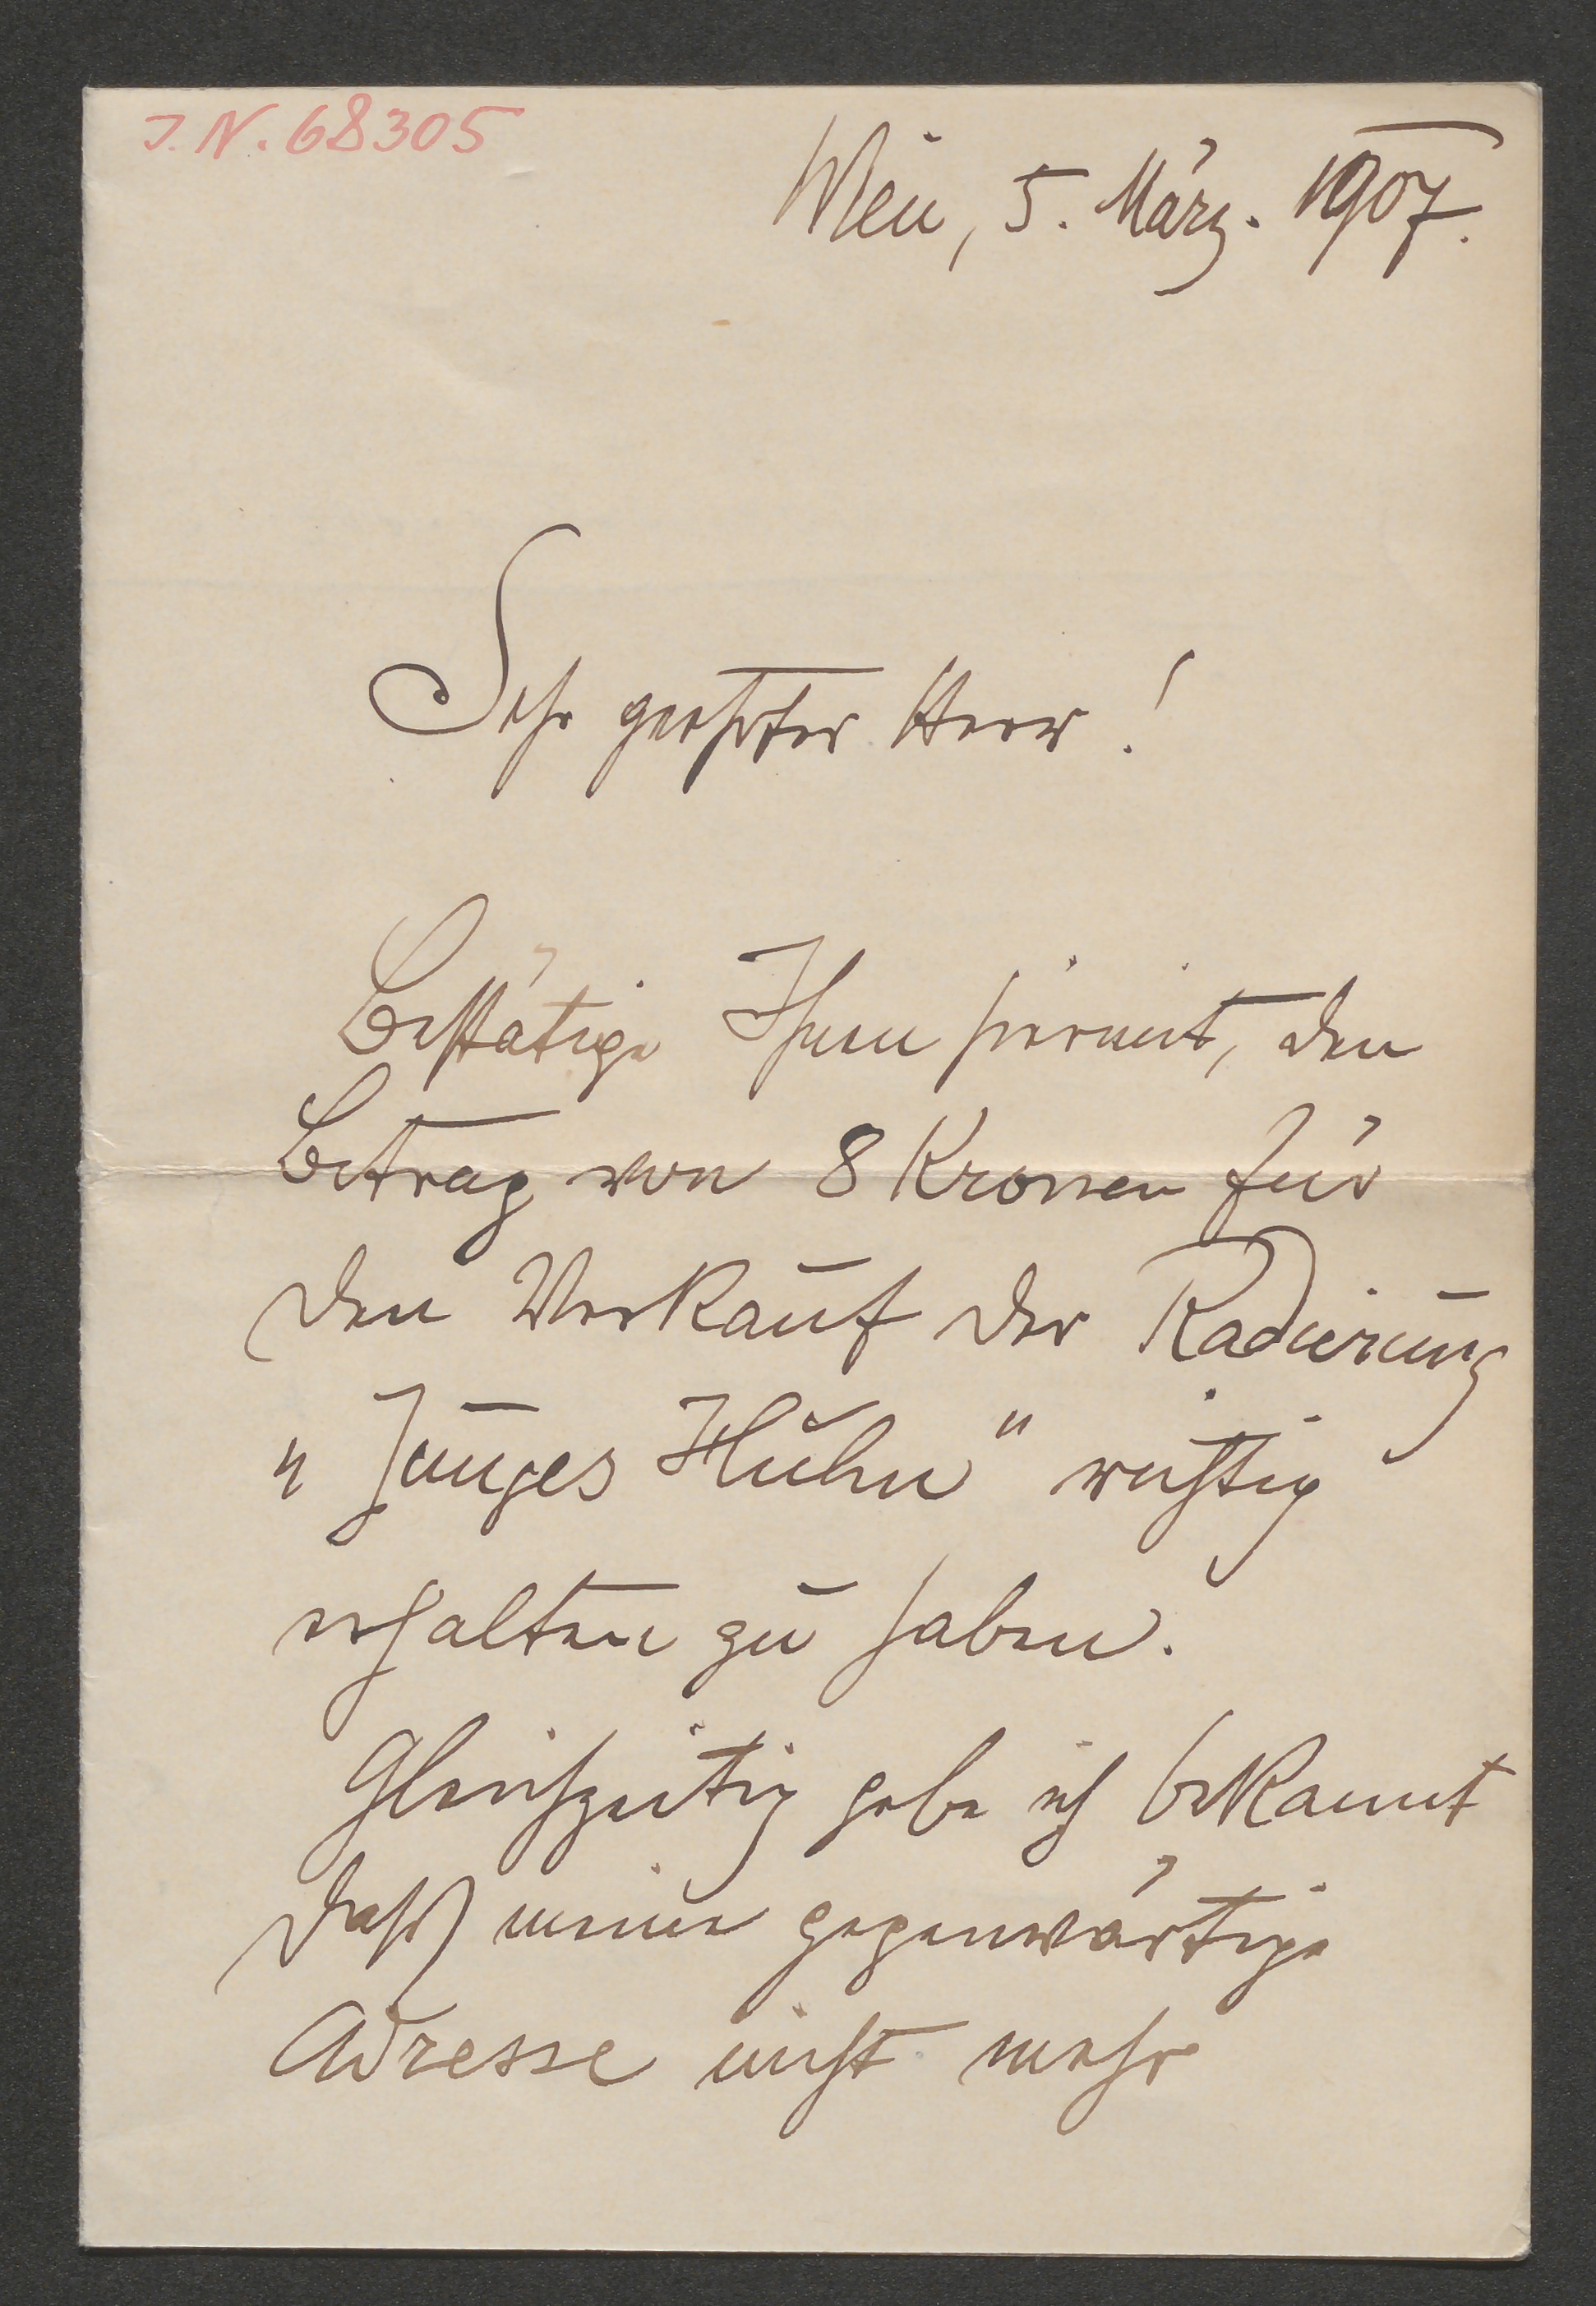 J. N. 68305
Wien, 5. März. 1907.
Sehr geehrter Herr!
Bestätige Ihnen hiermit, den
Betrag von 8 Kronen für
den Verkauf der Radierung
„Junges Huhn" richtig
erhalten zu haben.
Gleichzeitig gebe ich bekannt
daß meine gegenwärtige
Adresse nicht mehr